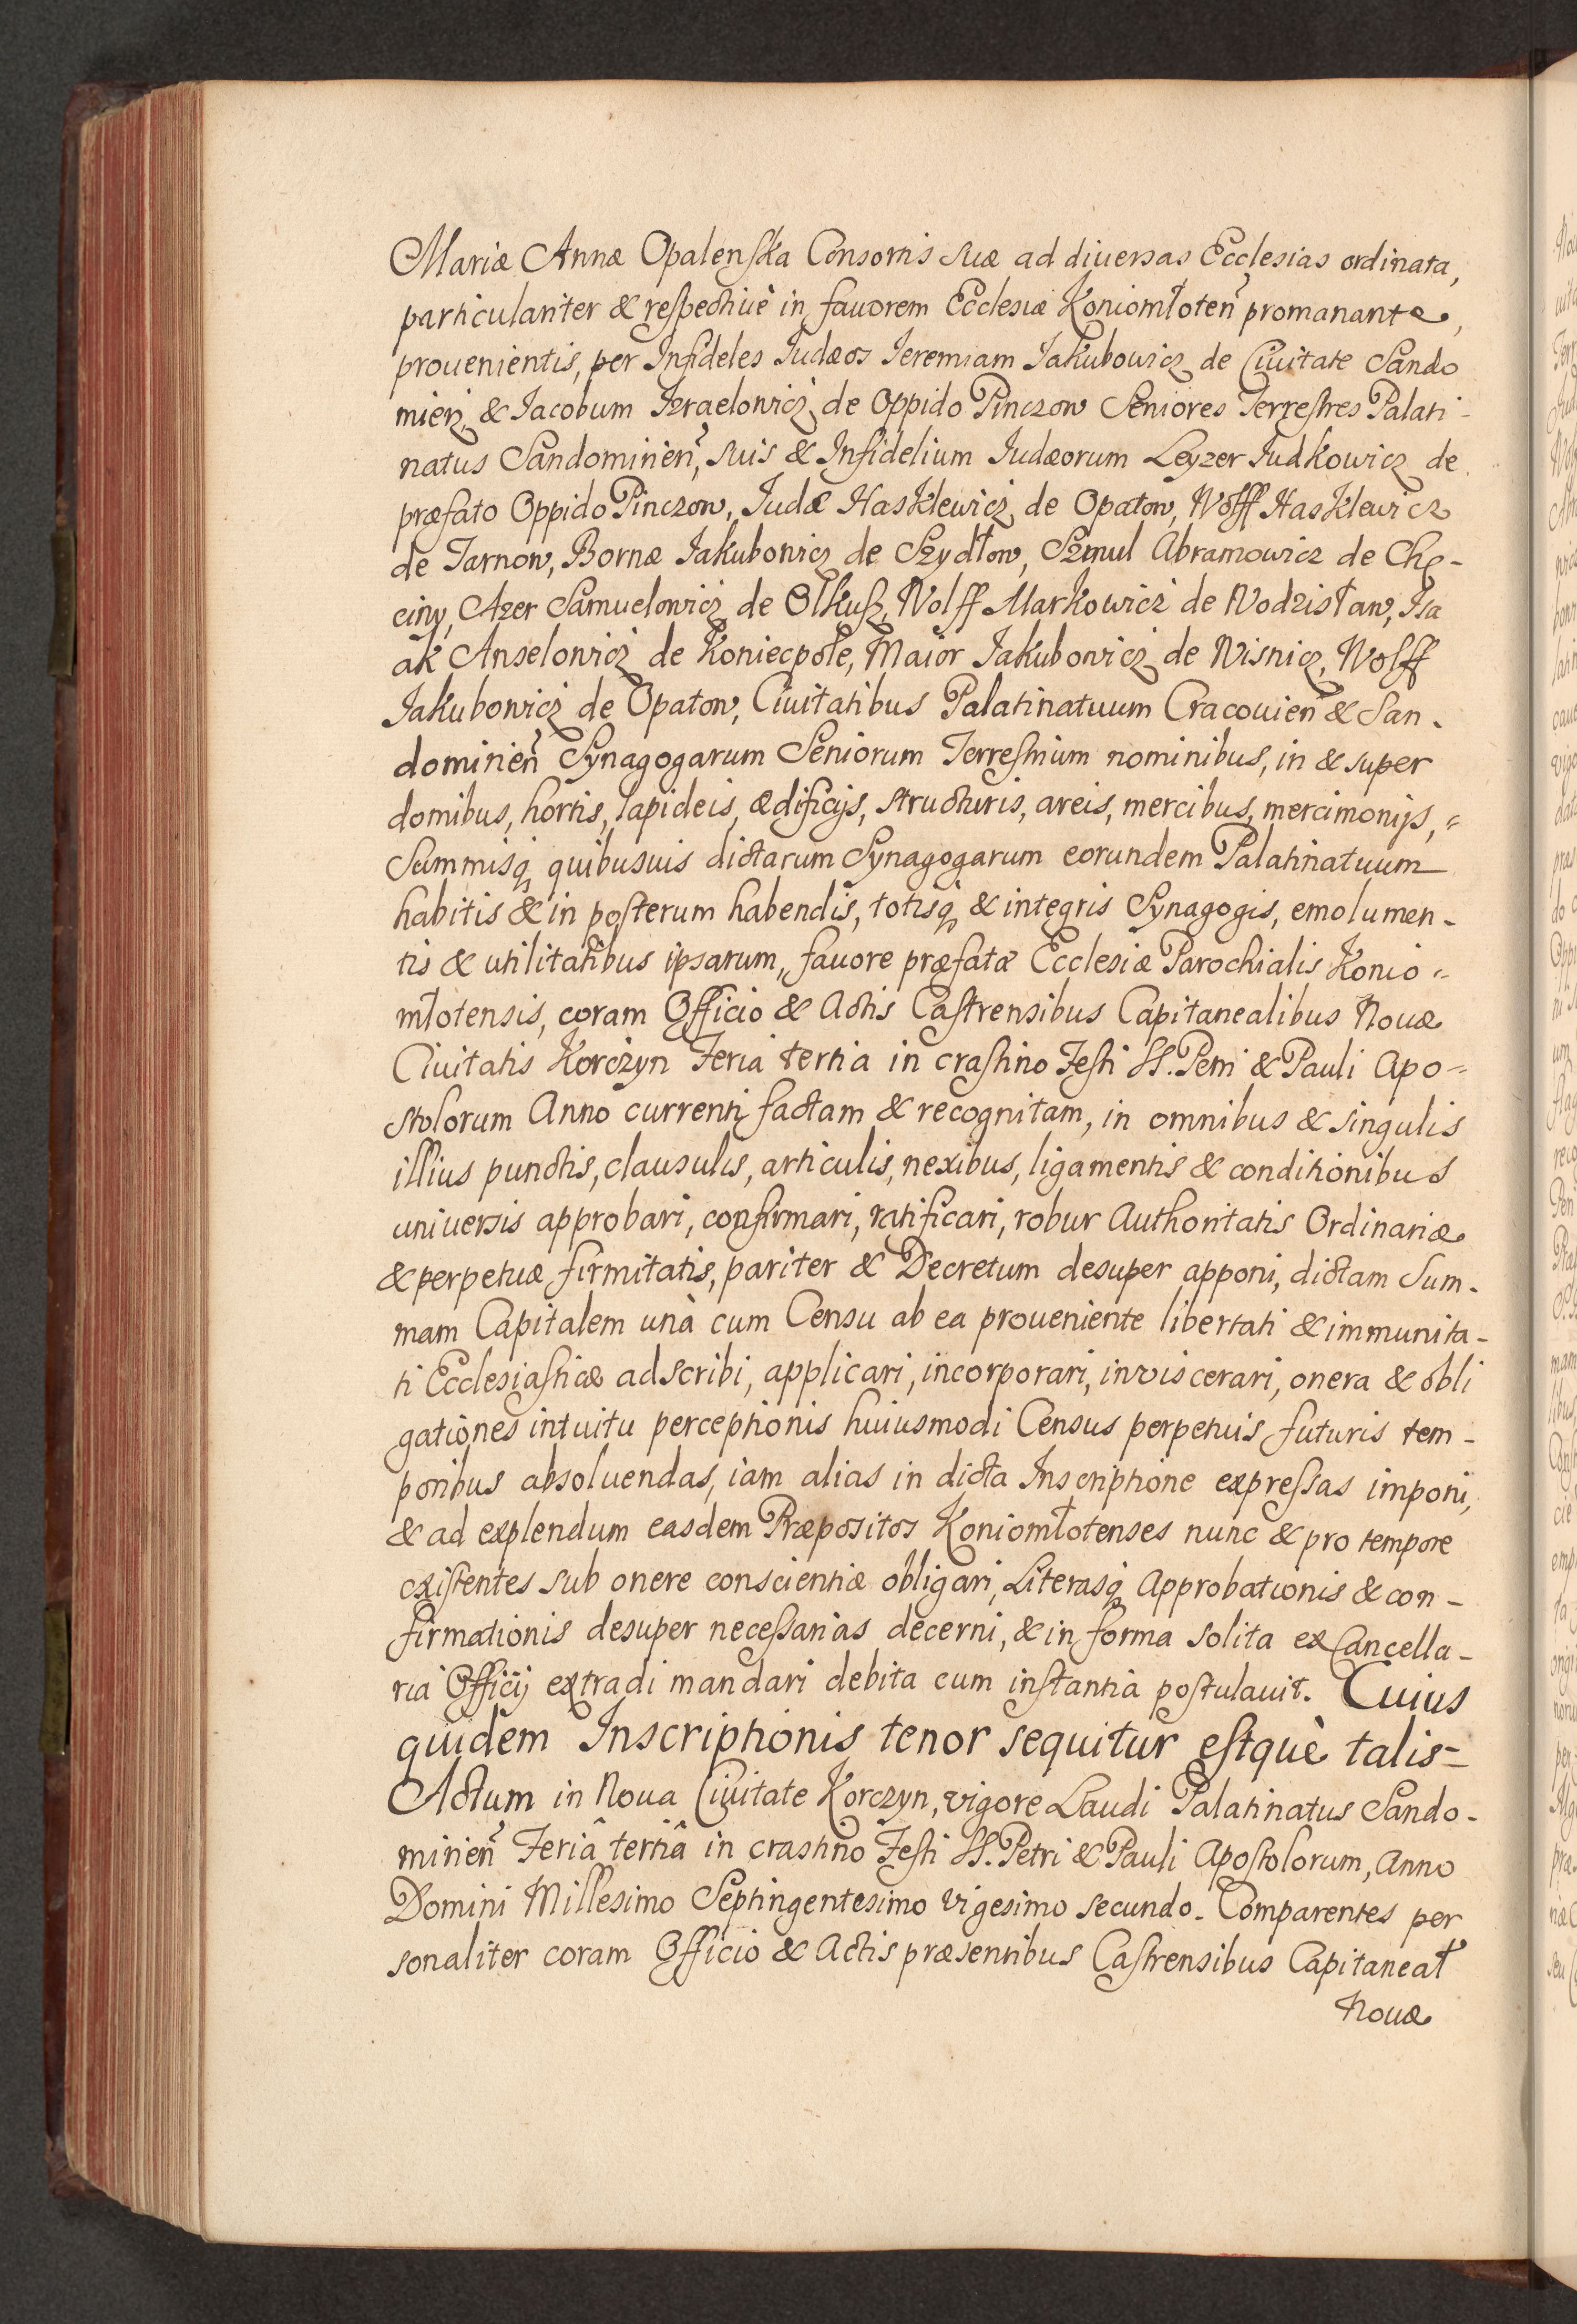 Mariæ Annæ Opalenska Consortis suæ ad diuersas Ecclesias ordinata,
particulariter & respectiuè in fauorem Ecclesiæ Koniomłoteñ promanante,
prouenientis, per Infideles Iudæos Ieremiam Iakubowicz de Ciuitate Sando
mierz, & Iacobum Izraelowicz de Oppido Pinczow Seniores Terrestres Palati-
natus Sandomirieñ, suis & Infidelium Iudæorum Leyzer Iudkowicz de
præfato Oppido Pinczow, Iudæ Hasklewicz de Opatow, Wolff Hasklewicz
de Tarnow, Bornæ Iakubowicz de Szydłow, Szmul Abramowicz de Chę-
ciny, Azer Samuelowicz de Olkusz, Wolff Markowicz de Wodzisław, Isa
ak Anselowicz de Koniecpole, Maior Iakubowicz de Wisnicz, Wolff
Iakubowicz de Opatow, Ciuitatibus Palatinatuum Cracouieñ & San-
domirieñ Synagogarum Seniorum Terrestrium nominibus, in & super
domibus, hortis, lapideis, ædificijs, structuris, areis, mercibus, mercimonijs, =
Summisq; quibusuis dictarum Synagogarum eorundem Palatinatuum
habitis & in posterum habendis, totisq; & integris Synagogis, emolumen-
tis & utilitatibus ipsarum, fauore præfatæ Ecclesiæ Parochialis Konio=
młotensis, coram Officio & Actis Castrensibus Capitanealibus Nouæ
Ciuitatis Korczyn Feria tertia in crastino Festi SS. Petri & Pauli Apo=
stolorum Anno currenti factam & recognitam, in omnibus & singulis
illius punctis, clausulis, articulis, nexibus, ligamentis & conditionibus
uniuersis approbari, confirmari, ratificari, robur Authoritatis Ordinariæ
& perpetuæ firmitatis, pariter & Decretum desuper apponi, dictam Sum-
mam Capitalem unà cum Censu ab ea proueniente libertati & immunita-
ti Ecclesiasticæ adscribi, applicari, incorporari, inviscerari, onera & obli
gationes intuitu perceptionis huiusmodi Census perpetuis futuris tem-
poribus absoluendas, iam alias in dicta Inscriptione expressas imponi,
& ad explendum easdem Præpositos Koniomłotenses nunc & pro tempore
existentes sub onere conscientiæ obligari, Literasq; Approbationis & con-
firmationis desuper necessarias decerni, & in forma solita ex Cancella-
ria Officij extradi mandari debita cum instantia postulauit. Cuius
quidem Inscriptionis tenor sequitur estquè talis=
Actum in Noua Ciuitate Korczyn, vigore Laudi Palatinatus Sando-
mirieñ Feriâ tertiâ in crastino Festi SS. Petri & Pauli Apostolorum, Anno
Domini Millesimo Septingentesimo Vigesimo secundo. Comparentes per
sonaliter coram Officio & Actis præsentibus Castrensibus Capitaneał
Nouæ